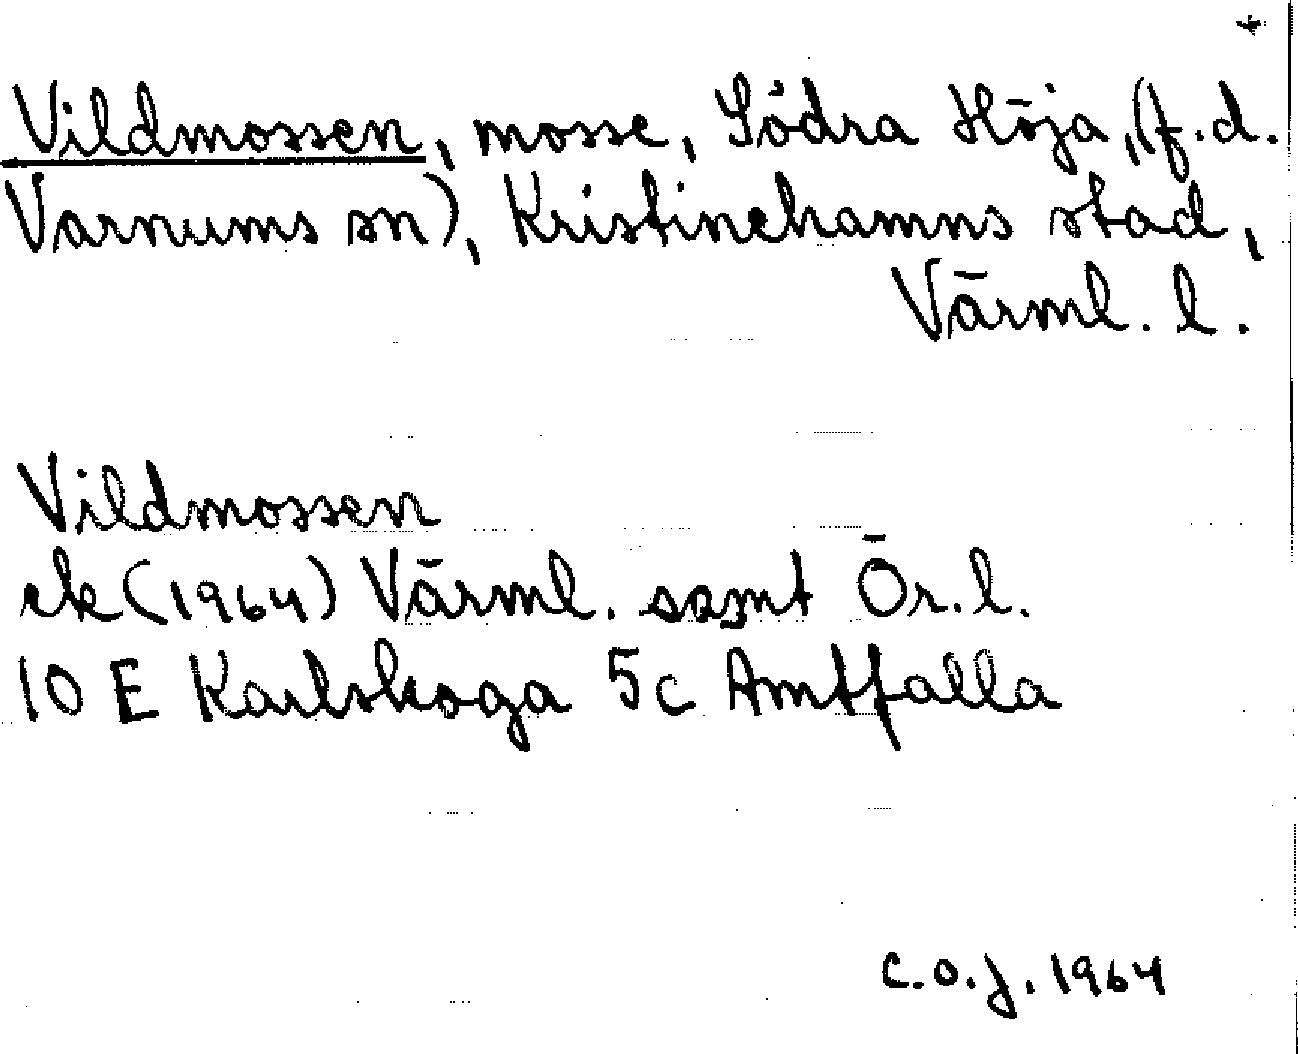 +
Vildmossen, mosse, Södra Höja, (f.d.
Varnums sn), Kristinehamns stad,
Värml. l.
Vildmossen
ek (1964) Värml. samt Ör. l.
10 E Karlskoga 5c Amtfalla
C.O.J. 1964